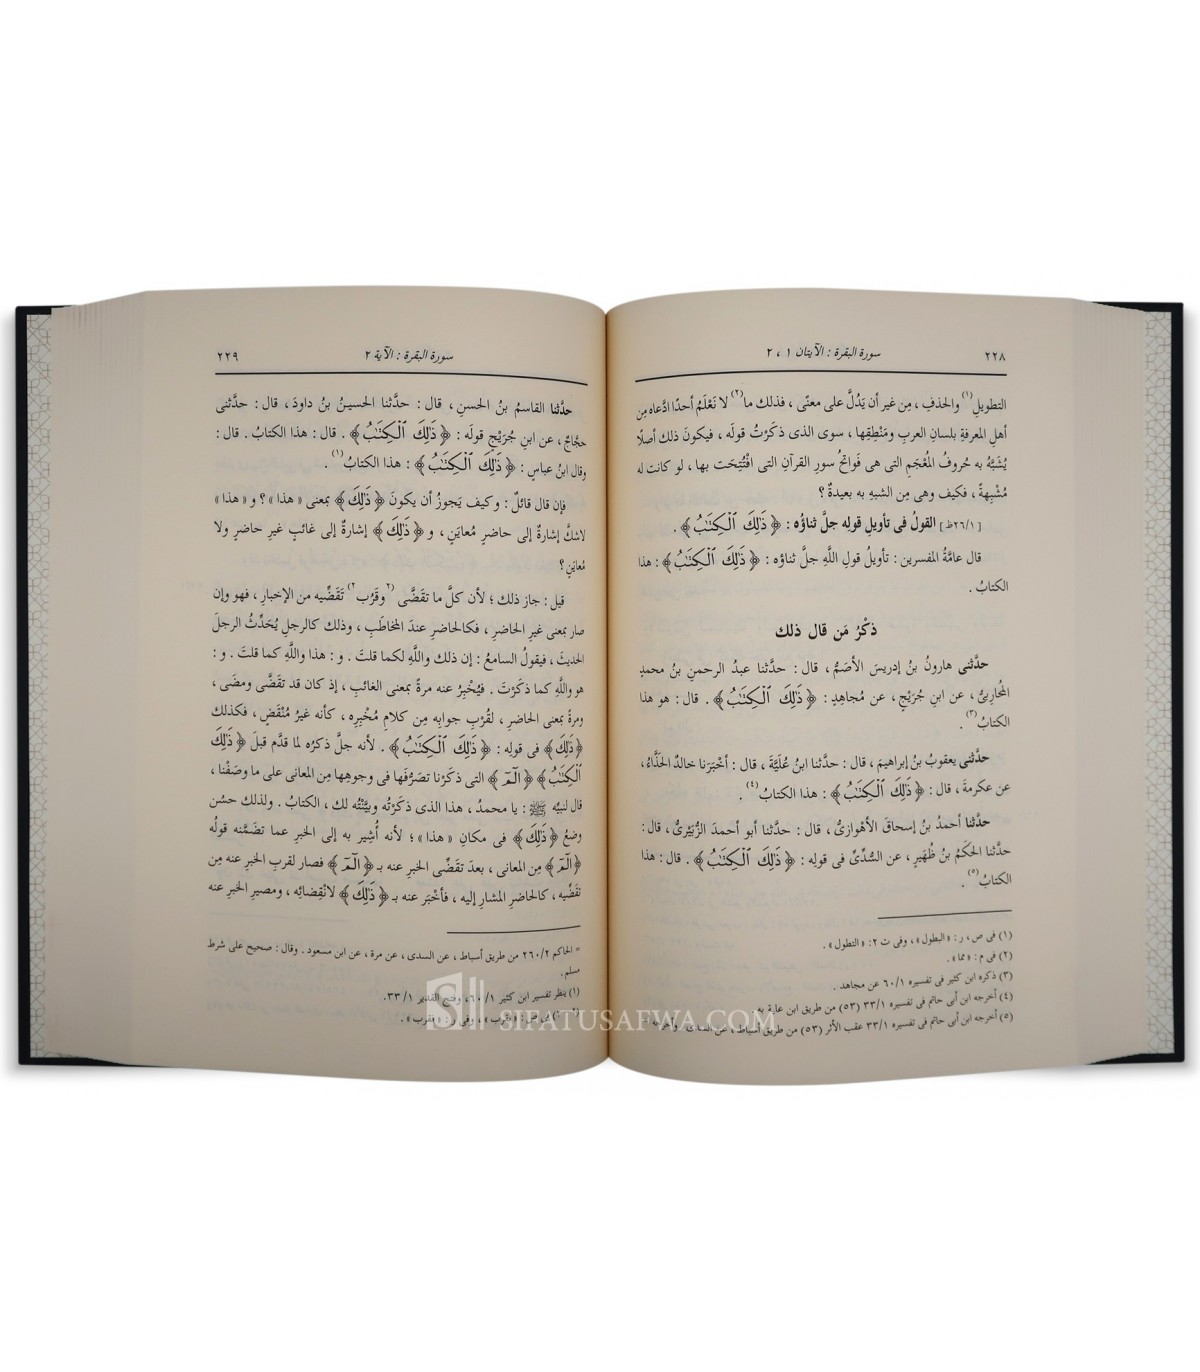 ٢٢٨ سورة البقرة : الآيتان ١ ، ٢
التطويلِ(١) والحذفِ ، مِن غيرِ أن يَدُلَّ على معنًى ، فذلك ما(٢) لا نَعْلَمُ أحدًا ادَّعاه مِن
أهلِ المعرفةِ بلسانِ العربِ ومَنْطِقِها ، سوى الذى ذكَرْتُ قولَه ، فيكونَ ذلك أصلًا
يُشَبَّهُ به حُروفُ المُعْجَمِ التى هى فَواتحُ سورِ القرآنِ التى افْتُتِحَت بها ، لو كانت له
مُشْبِهةً ، فكيف وهى مِن الشبهِ به بعيدةٌ ؟
[٢٦/١ظ] القولُ فى تأويلِ قولِه جلَّ ثناؤُه : ﴿ ذَٰلِكَ ٱلْكِتَٰبُ ﴾ .
قال عامَّةُ المفسرين : تأويلُ قولِ اللَّهِ جلَّ ثناؤُه : ﴿ ذَٰلِكَ ٱلْكِتَٰبُ ﴾ : هذا
الكتابُ .
ذكْرُ مَن قال ذلك
حدَّثنى هارونُ بنُ إدريسَ الأصَمُّ ، قال : حدَّثنا عبدُ الرحمنِ بنُ محمدٍ
المُحَارِبىُّ ، عن ابنِ جُرَيْجٍ ، عن مُجاهِدٍ : ﴿ ذَٰلِكَ ٱلْكِتَٰبُ ﴾ . قال : هو هذا
الكتابُ(٣) .
حدَّثنى يعقوبُ بنُ إبراهيمَ ، قال : حدَّثنا ابنُ عُلَيَّةَ ، قال : أخْبَرَنا خالدٌ الحَذَّاءُ ،
عن عكرمةَ ، قال : ﴿ ذَٰلِكَ ٱلْكِتَٰبُ ﴾ : هذا الكتابُ(٤) .
حدَّثنا أحمدُ بنُ إسحاقَ الأهْوازىُّ ، قال : حدَّثنا أبو أحمدَ الزُّبَيْرىُّ ، قال :
حدَّثنا الحَكَمُ بنُ ظُهَيرٍ ، عن السُّدِّىِّ فى قولِه : ﴿ ذَٰلِكَ ٱلْكِتَٰبُ ﴾ . قال : هذا
الكتابُ(٥) .
(١) فى ص ، ر : « البطول » ، وفى ت ٢ : « التطول » .
(٢) فى م : « مما » .
(٣) ذكره ابن كثير فى تفسيره ٦٠/١ عن مجاهد .
(٤) أخرجه ابن أبى حاتم فى تفسيره ٣٣/١ (٥٣) من طريق ابن علية به .
(٥) أخرجه ابن أبى حاتم فى تفسيره ٣٣/١ عقب الأثر (٥٣) من طريق أسباط ، عن السدى . وأخرجه =
سورة البقرة : الآية ٢ ٢٢٩
حدَّثنا القاسمُ بنُ الحسنِ ، قال : حدَّثنا الحسينُ بنُ داودَ ، قال : حدَّثنى
حجَّاجٌ ، عن ابنِ جُرَيْجٍ قولَه : ﴿ ذَٰلِكَ ٱلْكِتَٰبُ ﴾ . قال : هذا الكتابُ . قال :
وقال ابنُ عباسٍ : ﴿ ذَٰلِكَ ٱلْكِتَٰبُ ﴾ : هذا الكتابُ(١) .
فإن قال قائلٌ : وكيف يَجوزُ أن يكونَ ﴿ ذَٰلِكَ ﴾ بمعنى « هذا » ؟ و « هذا »
لاشكَّ إشارةٌ إلى حاضرٍ مُعايَنٍ ، و ﴿ ذَٰلِكَ ﴾ إشارةٌ إلى غائبٍ غيرِ حاضرٍ ولا
مُعايَنٍ ؟
قيل : جاز ذلك ؛ لأن كلَّ ما تقَضَّى (٢وقَرُب٢) تَقَضِّيه من الإخبارِ ، فهو وإن
صار بمعنى غيرِ الحاضرِ ، فكالحاضرِ عندَ المُخاطَبِ ، وذلك كالرجلِ يُحَدِّثُ الرجلَ
الحديثَ ، فيقولُ السامعُ : إن ذلك واللَّهِ لكما قلتَ . و : هذا واللَّهِ كما قلتَ . و :
هو واللَّهِ كما ذكَرْتَ . فيُخْبِرُ عنه مرةً بمعنى الغائبِ ، إذ كان قد تقَضَّى ومضَى ،
ومرةً بمعنى الحاضرِ ، لقُرْبِ جوابِه مِن كلامِ مُخْبِرِه ، كأنه غيرُ مُنْقَضٍ ، فكذلك
﴿ ذَٰلِكَ ﴾ فى قولِه : ﴿ ذَٰلِكَ ٱلْكِتَٰبُ ﴾ . لأنه جلَّ ذكرُه لما قدَّم قبلَ ﴿ ذَٰلِكَ
ٱلْكِتَٰبُ ﴾ ﴿ الٓمٓ ﴾ التى ذكَرْنا تصَرُّفَها فى وجوهِها مِن المعانى على ما وصَفْنا ،
قال لنبيِّه ﷺ : يا محمدُ ، هذا الذى ذكَرْتُه وبيَّنْتُه لك ، الكتابُ . ولذلك حسُن
وضعُ ﴿ ذَٰلِكَ ﴾ فى مكانِ « هذا » ؛ لأنه أُشِير به إلى الخبرِ عما تضَمَّنه قولُه
﴿ الٓمٓ ﴾ مِن المعانى ، بعدَ تقَضِّى الخبرِ عنه بـ ﴿ الٓمٓ ﴾ فصار لقربِ الخبرِ عنه مِن
تقَضِّيه ، كالحاضرِ المشارِ إليه ، فأخْبَر عنه بـ ﴿ ذَٰلِكَ ﴾ لانْقِضائِه ، ومصيرِ الخبرِ عنه
= الحاكم ٢٦٠/٢ من طريق أسباط ، عن السدى ، عن مرة ، عن ابن مسعود . وقال : صحيح على شرط
مسلم .
(١) ينظر تفسير ابن كثير ٦٠/١ ، وفتح القدير ٣٣/١ .
وفى ر : « فقرب » .
SIFATUSAFWA.COM